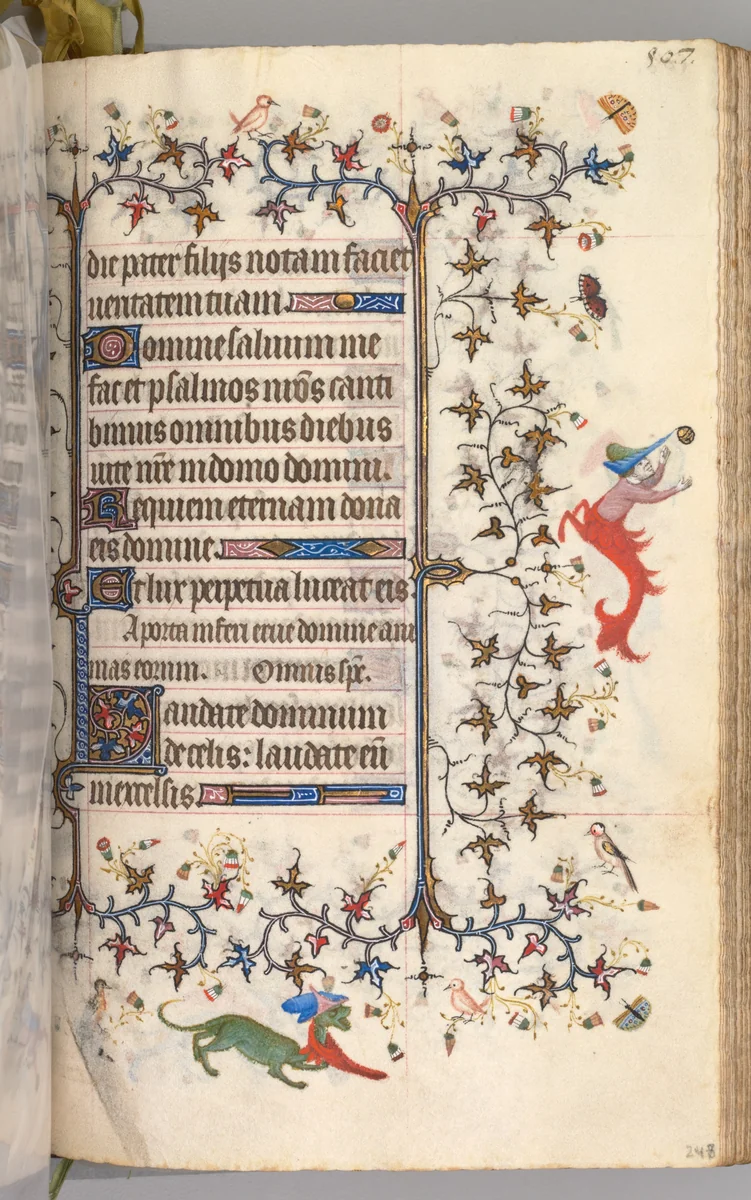 807.
die pater filijs notam faciet
ueritatem tuam.
Domine saluum me
fac et psalmos nr̄os canti
bimus omnibus diebus
uite nr̄e in domo domini.
Requiem eternam dona
eis domine.
Et lux perpetua luceat eis.
A porta inferi erue domine ani
mas eorum. Omnis spc̄.
Laudate dominum
de celis: laudate eū
in excelsis.
248